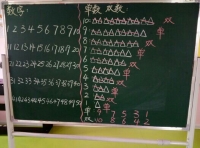 数字: 单数 双数
1 2 3 4 5 6 7 8 9 10
11 12 13 14 15 16 17 18 19 20
21 22 23 24 25 26 27 28 29 30
31 32 33 34 35 36 37 38 39 40
41 42 43 44 45 46 47 48 49 50
10 双
9 单
8 双
7 单
6 双
5 单
4 双
3 单
2 双
1 单
单 9 7 5 3 1
双 10 8 6 4 2